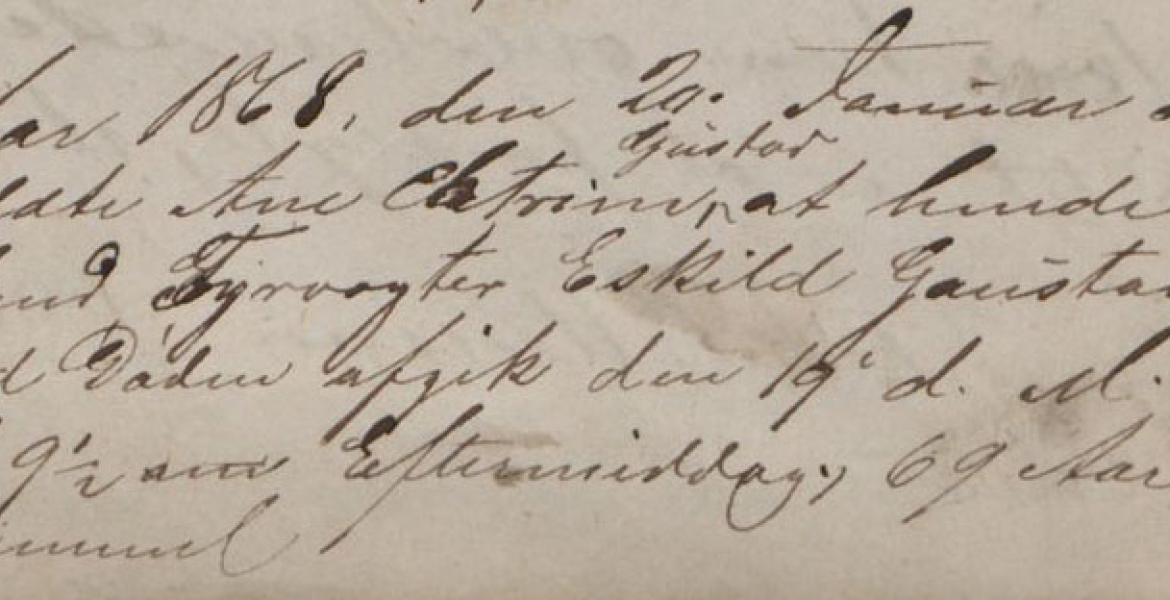 ar 1868, den 20. Januar
Gustav
ldte Ane Catrine, at hendes
nd Fyrvogter Eskild Gaustav
d Døden afgik den 19' d. M.
9½ om Eftermiddag, 69 Aar
ammel